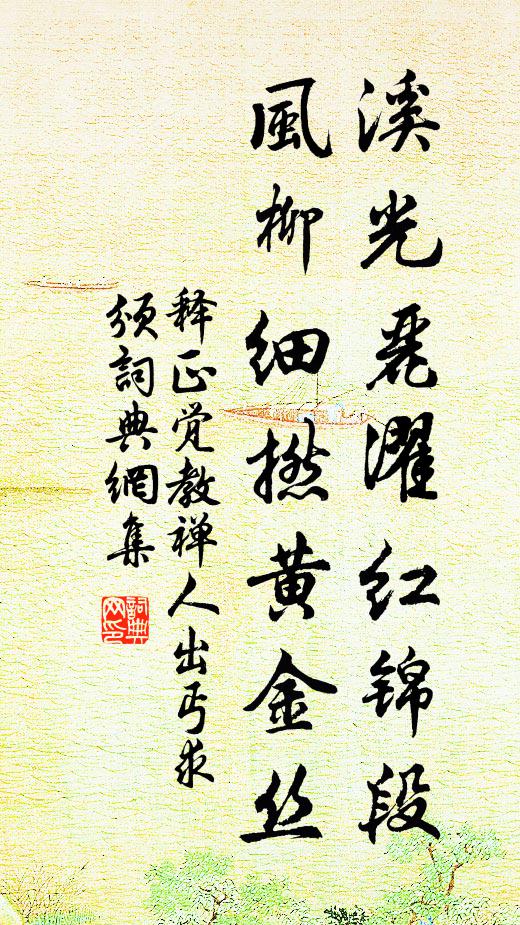 溪光晃濯红锦段
風柳细撚黄金丝
释正觉教禅人出丐求
颂詞典網集
詞典网印